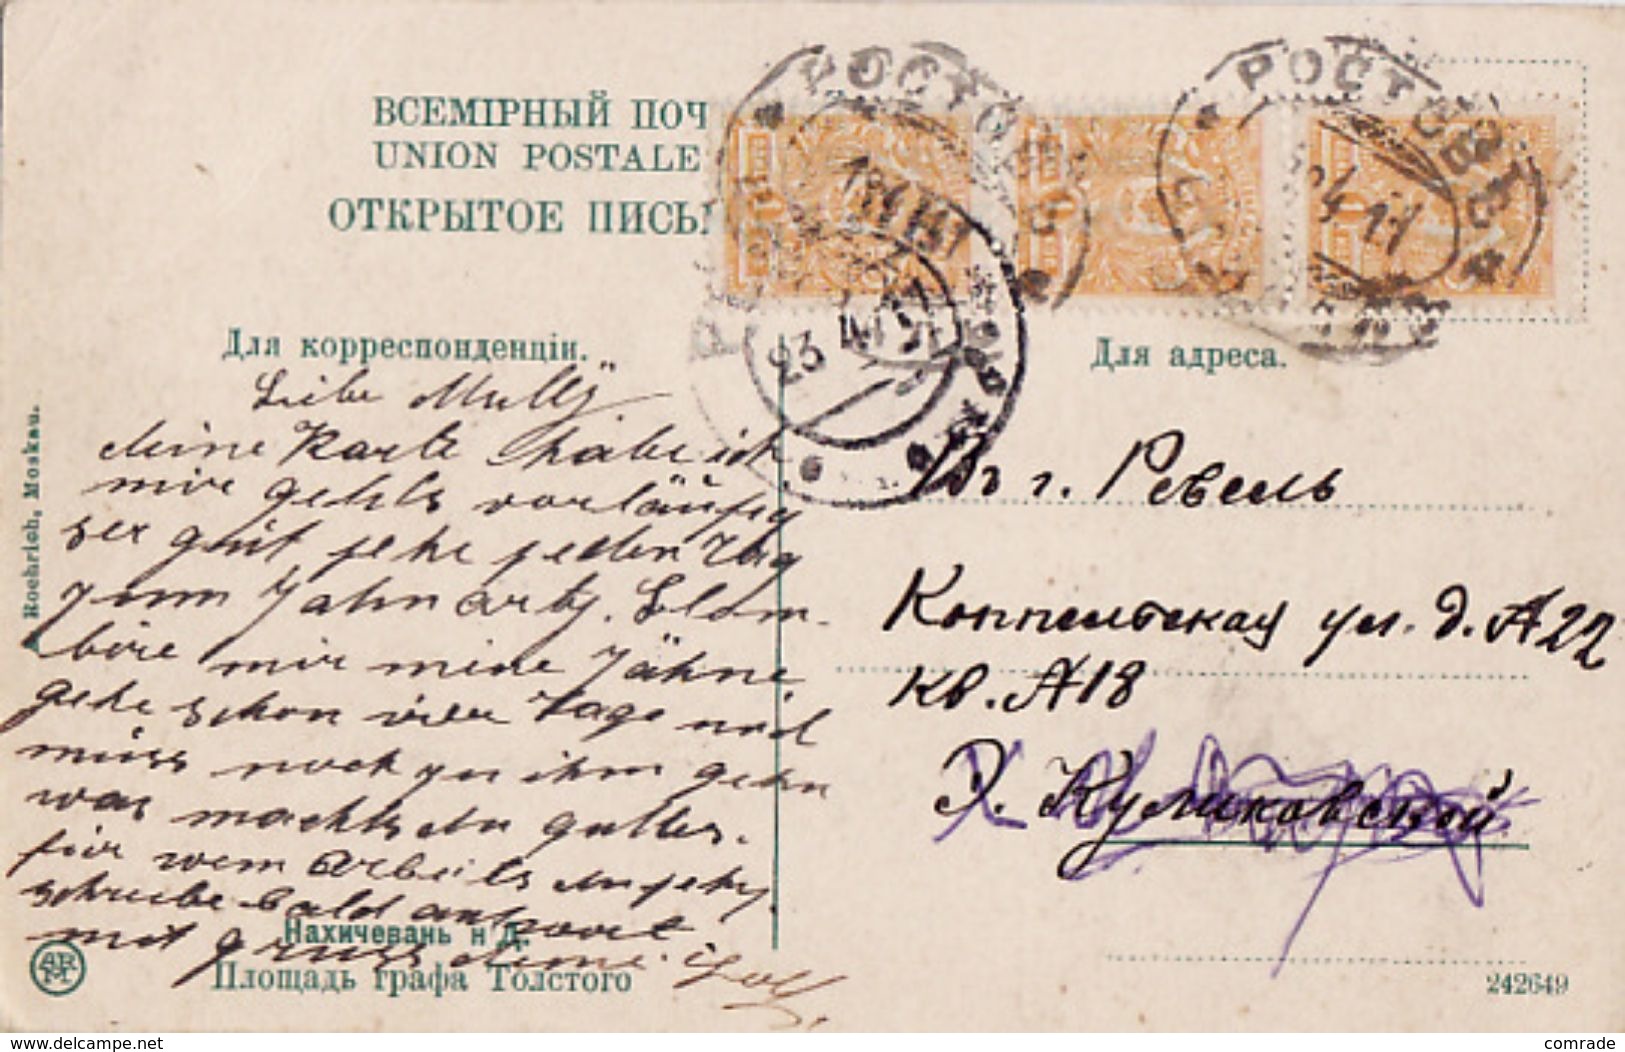 ВСЕМІРНЫЙ ПОЧ
UNION POSTALE
ОТКРЫТОЕ ПИСЬМ
РОСТОВ
РОСТОВ
23 4 17
Для корреспонденціи.
Для адреса.
A Roehrich, Moskau.
Liebe Mully
deine Karte habe ich
mir gehts vorläufig
ser gut gehe jeden Tag
zum Zahnartz. Blom-
bire mir meine Zähne,
gehe schon vier Tage und
muss noch zu ihm gehn
was machts du guttes.
für wem arbeits du jetz,
schreibe bald antwort
mit gruss deine
Въ г. Ревель
Коппельская ул. д. № 22
кв. № 18
Э. Куликовской
Нахичевань н Д.
Площадь графа Толстого
242649
www.delcampe.net
comrade